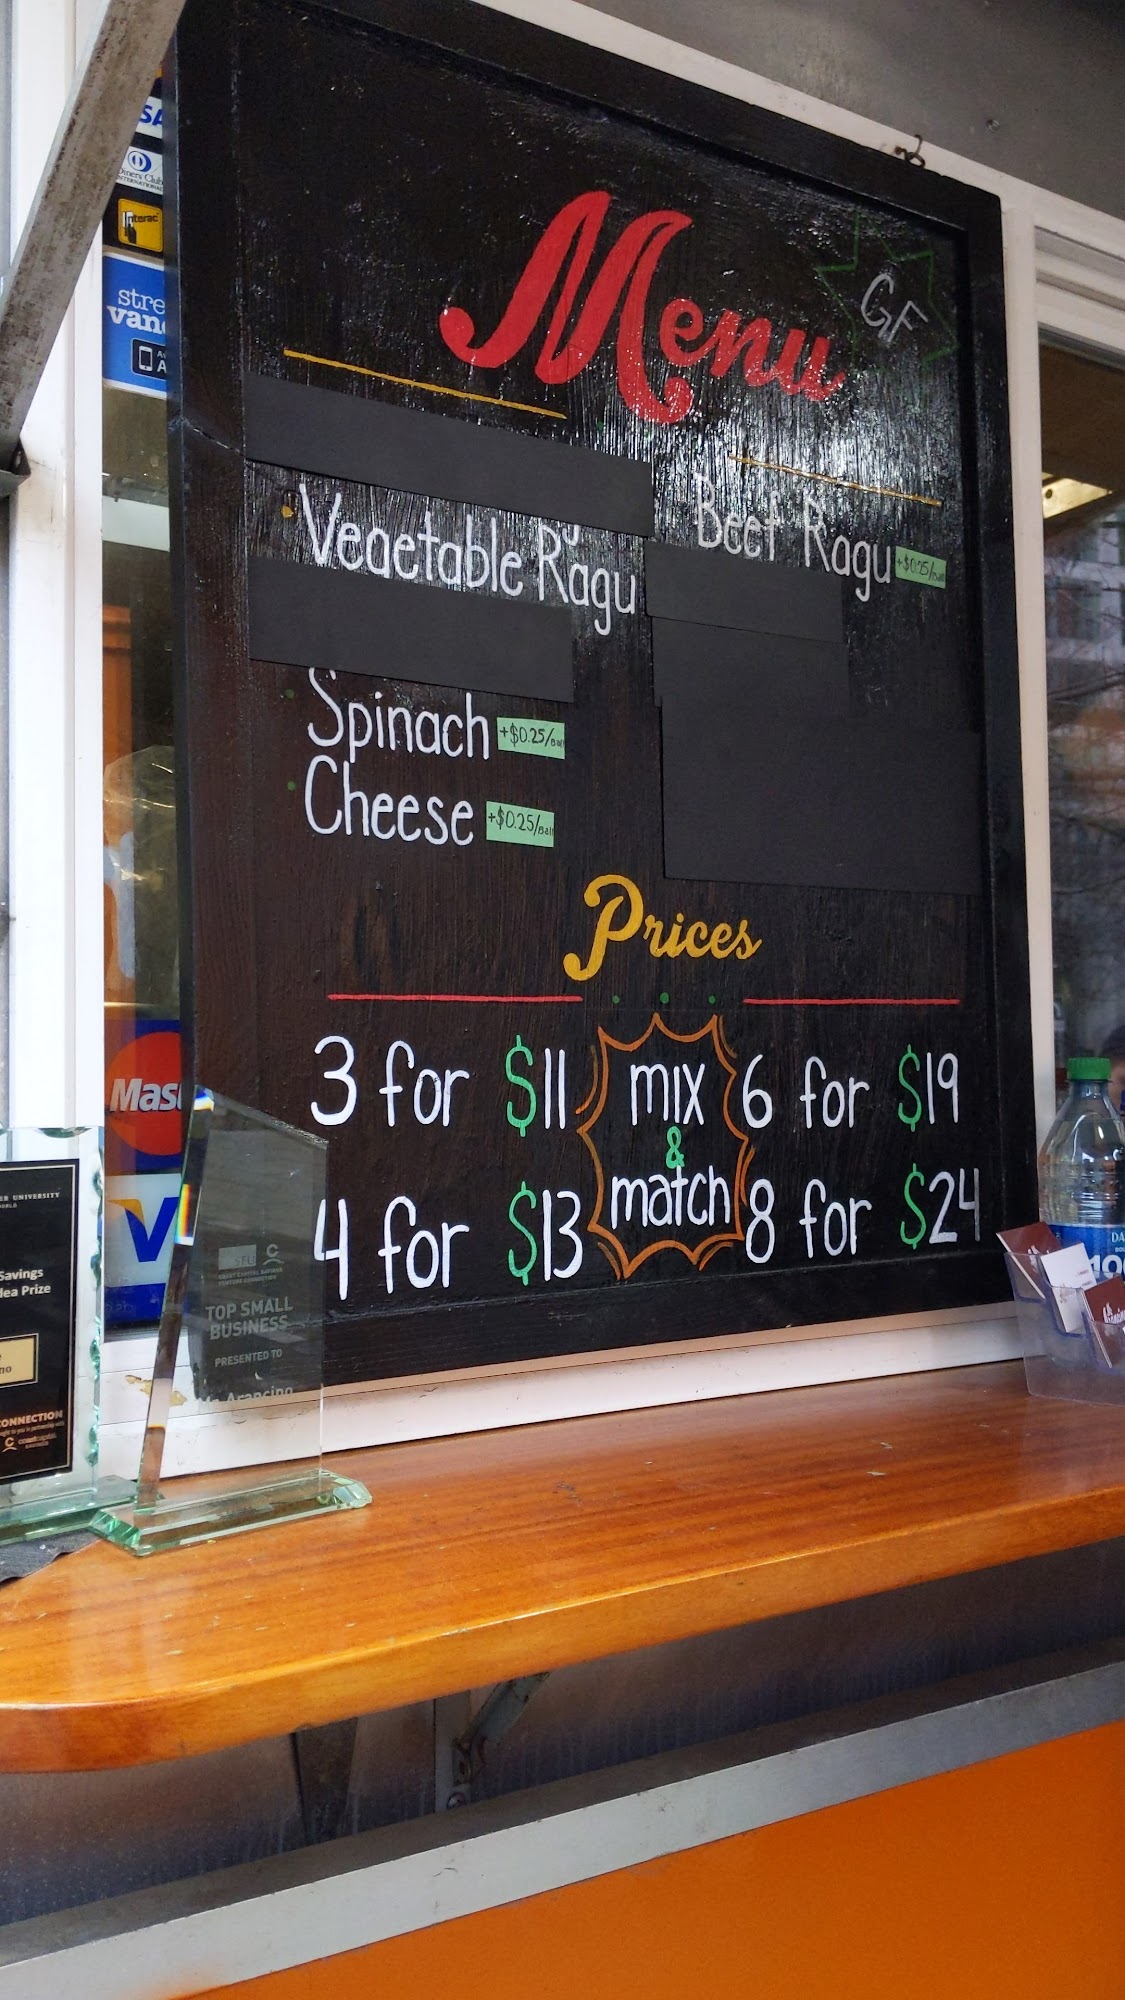 Diners Club
INTERNATIONAL
Interac
Menu
GF
Vegetable Ragu
Beef Ragu
Spinach +$0.25/Ball
Cheese +$0.25/Ball
Prices
3 for $11
mix
&
match
6 for $19
4 for $13
8 for $24
SFU
TOP SMALL
BUSINESS
PRESENTED TO
Arancino
UNIVERSITY
Savings
Idea Prize
CONNECTION